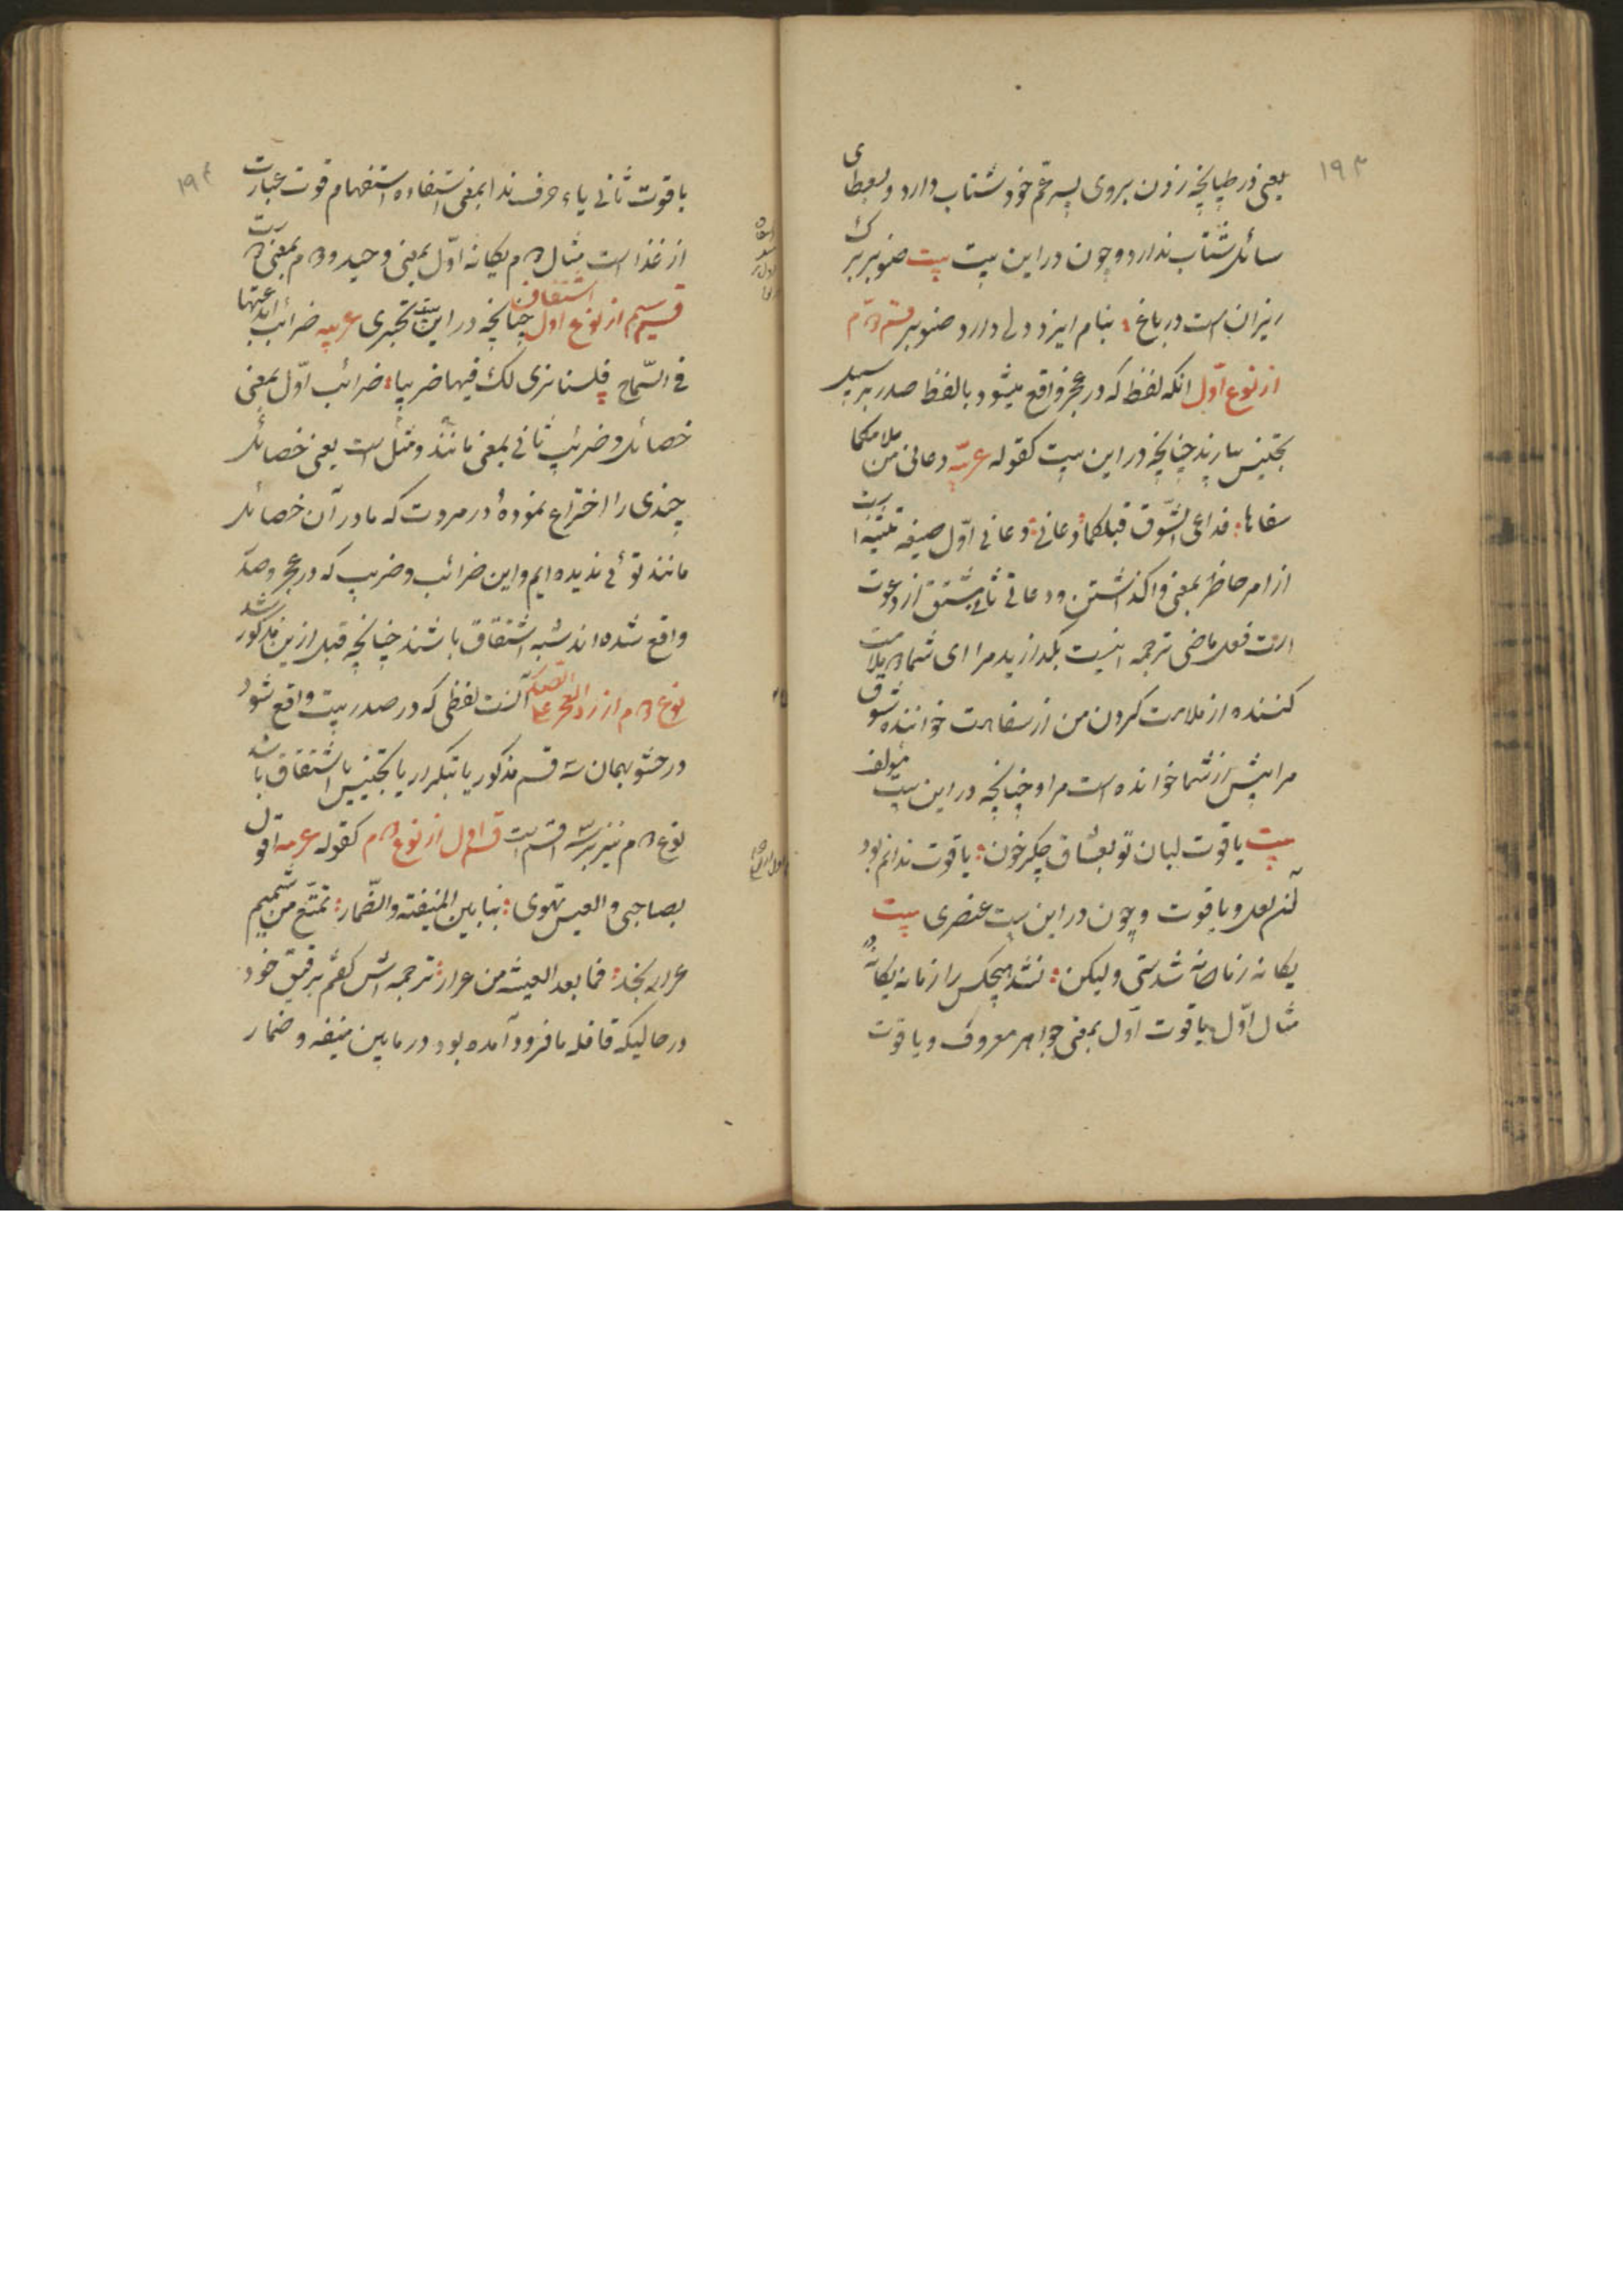 ۱۹۳
یعنی در طپانچه زدن بروی پسر عم خود شتاب دارد و بعطای
سائل شتاب ندارد و چون در این بیت بیت صنوبر برک
ریزان است در باغ بنام ایزد دلی دارد صنوبر قسم دوم
از نوع اول انکه لفظ که در عجز واقع میشود با لفظ صدر بر سبیل
تجنیس بیارند چنانچه در این بیت کقوله عربیه دعانی من ملامکما
سفاها فداعی الشوق قبلکما دعانی دعانی اول صیغه تثنیه است
از امر حاظر بمعنی واکذاشتن و دعانی ثانی مشتق از دعوت
است فعل ماضی ترجمه اینست بکذارید مرا ای شما دو ملامت
کننده از ملامت کردن من از سفاهت خواننده شوق
مرا پیش از شما خوانده است مرا و چنانچه در این بیت مؤلف
بیت یاقوت لبان تو بعشاق جکر خون یاقوت ندانم بود
آن لعل و یا قوت و چون در این بیت عنصری بیت
یکانه زمانه شدستی ولیکن نشد هیچکس را زمانه یکانه
مثال اول یاقوت اول بمعنی جواهر معروف و یاقوت
۱۹۴
یاقوت ثانی یاء حرف ندا بمعنی استفاده استفهام قوت عبارت
از غذا است مثال دوم یکانه اول بمعنی وحید و دوم بمعنی
قسم سیم از نوع اول اشتقاق چنانچه در این بیت بحتری عربیه ضرائب ابدعتها
فی السماح فلسنا نری لک فیها ضریبا ضرائب اول بمعنی
خصائل و ضریب ثانی بمعنی مانند و مثل است یعنی خصائل
چندی را اختراع نموده در مروت که ما در آن خصائل
مانند توئی ندیده ایم و این ضرائب و ضریب که در عجز و صدر
واقع شده اند شبه اشتقاق باشند چنانچه قبل ازین مذکور شد
نوع دوم از رد العجز علی الصدر آنست لفظی که در صدر بیت واقع شود
در حشو بهمان سه قسم مذکور یا بتکرار یا بتجنیس یا اشتقاق باشد
نوع دوم نیز بر سه قسم است قسم اول از نوع دوم کقوله عربیه اقول
بصاحبی و العیس تهوی بنا بین المنیفة و الضمار تمتع من شمیم
عرار نجد فما بعد العیشه من عرار ترجمه اش کفتم برفیق خود
در حالیکه قافله ما فرود آمده بود در مابین منیفه و ضمار